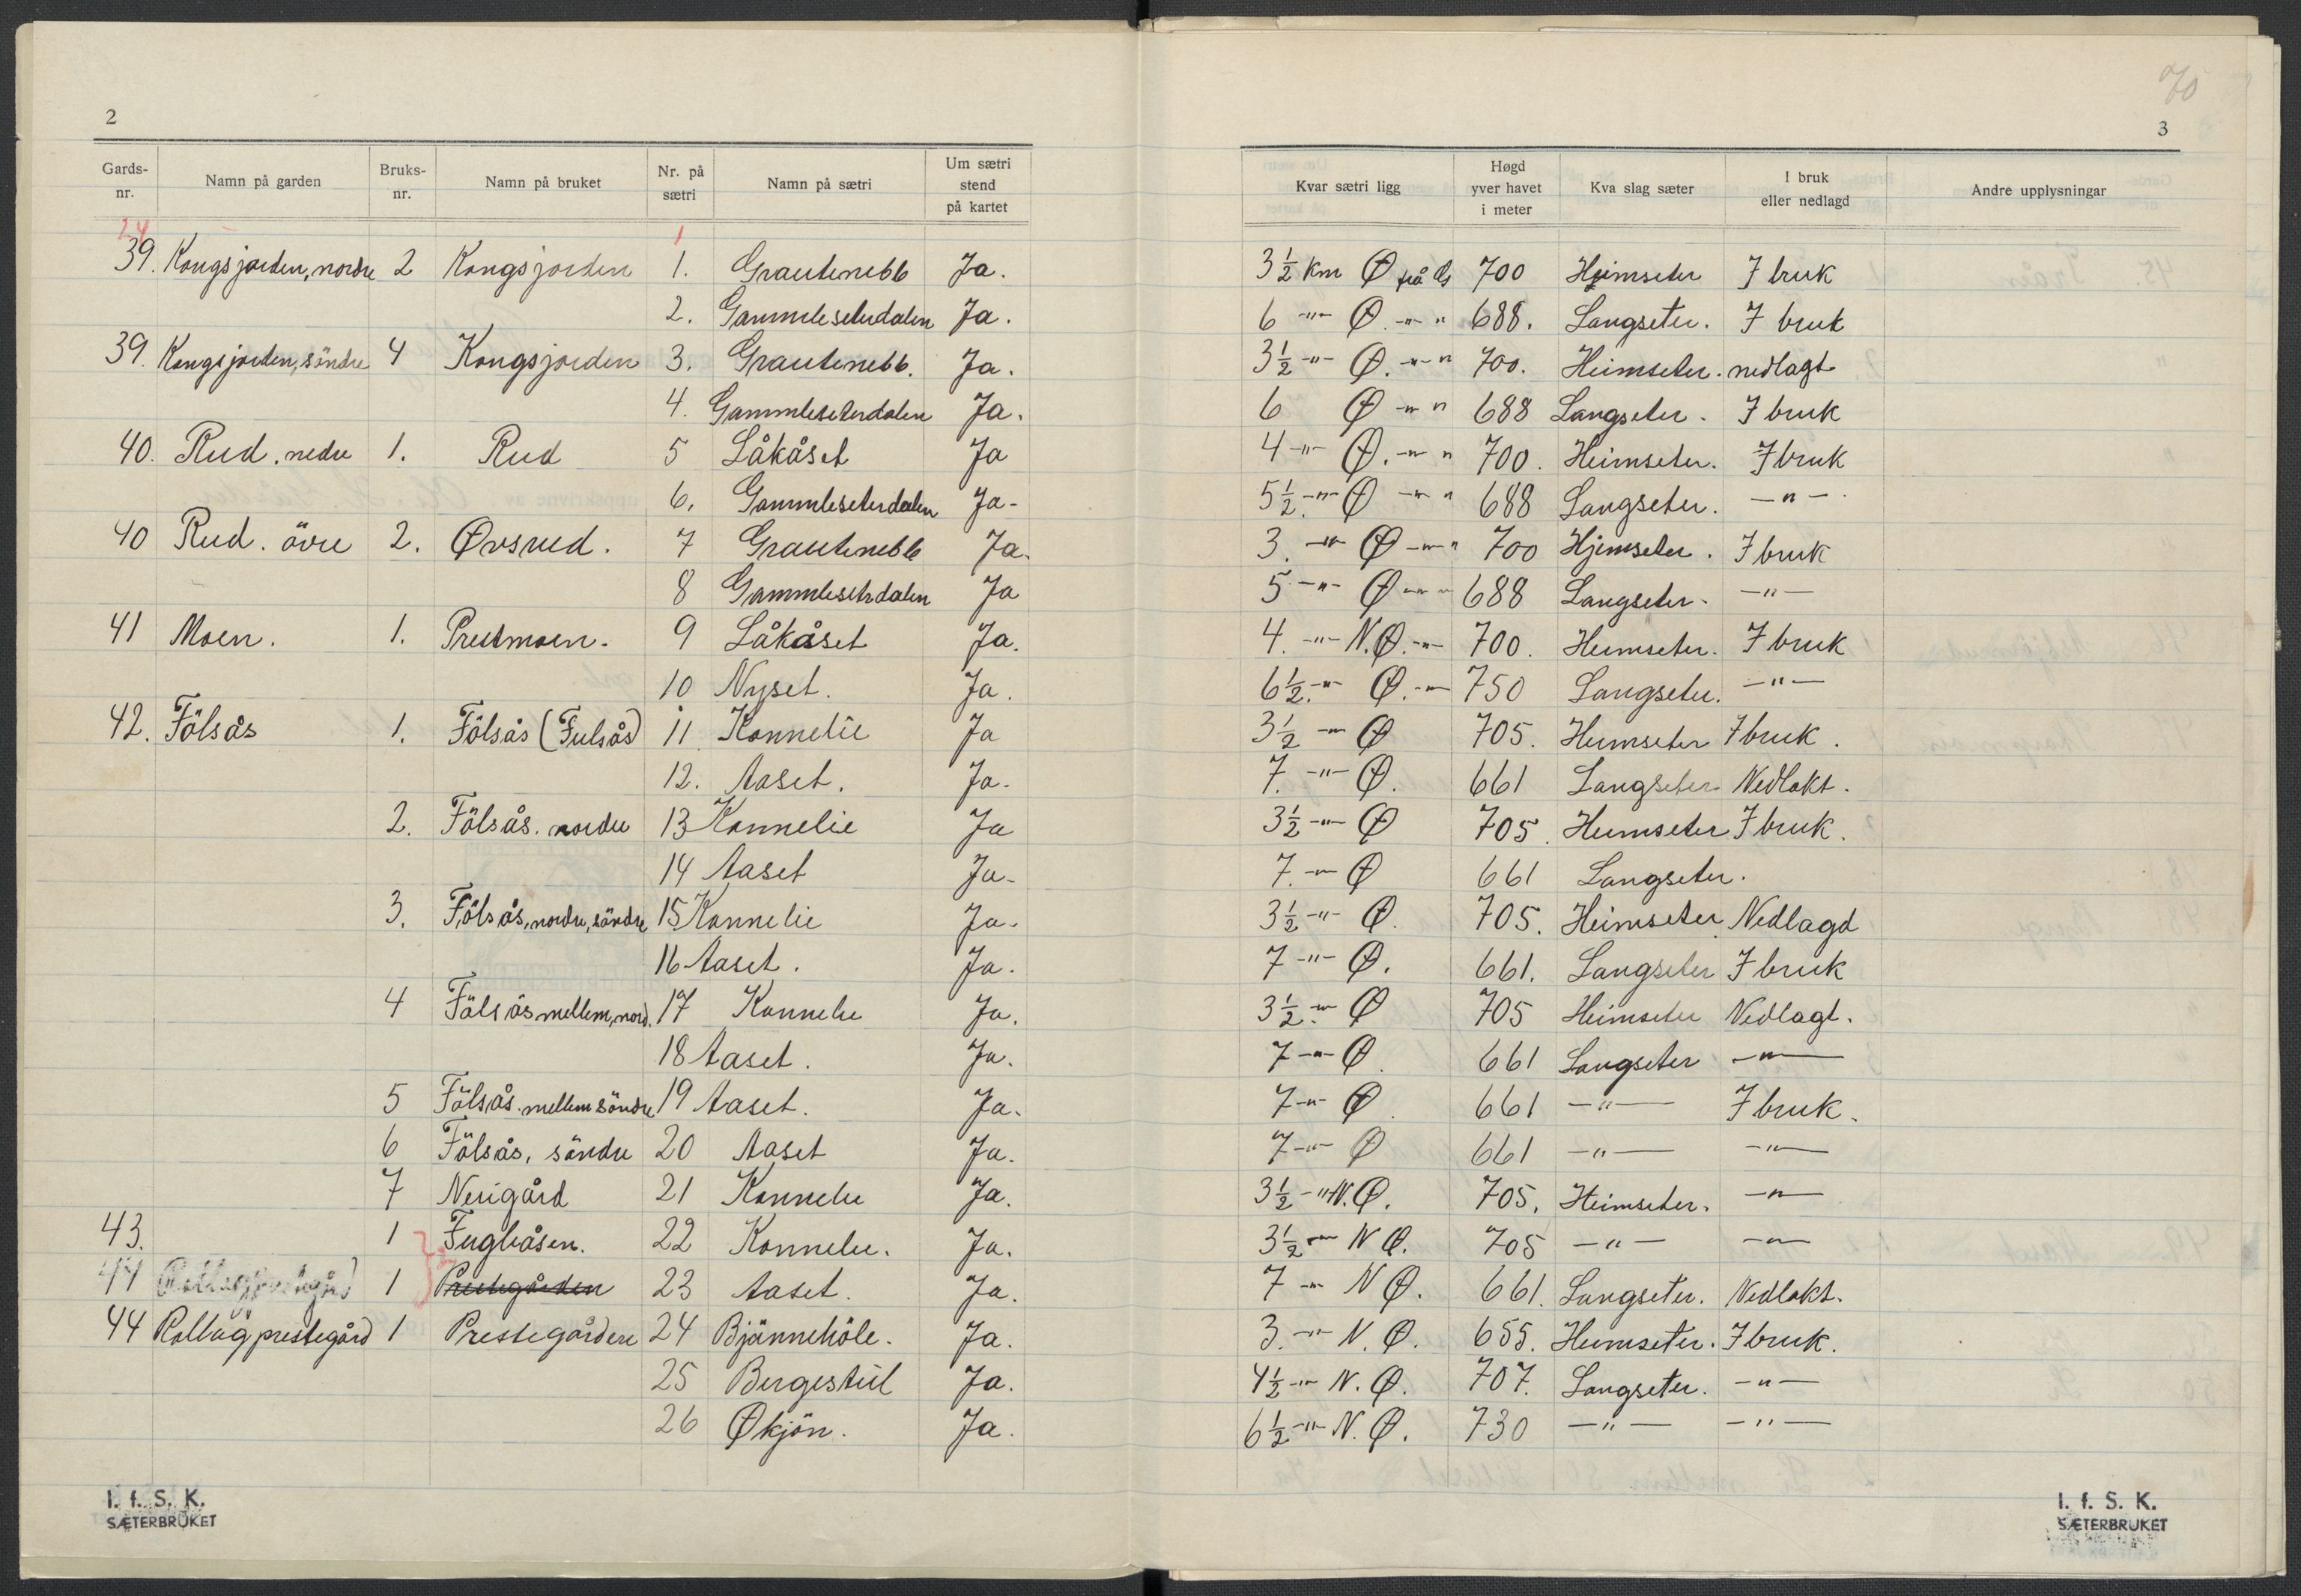 2
Gards-nr. Namn på garden Bruks-nr. Namn på bruket Nr. på sætri Namn på sætri Um sætri stend på kartet
24 1
39. Kongsjorden, nordre 2 Kongsjorden 1. Grautenebb Ja.
2. Gammleseterdalen Ja.
39. Kongsjorden, söndre 4 Kongsjorden 3. Grautenebb. Ja.
4. Gammleseterdalen Ja.
40. Rud. nedre 1. Rud 5 Låkåset Ja
6. Gammleseterdalen Ja-
40 Rud. övre 2. Øvsrud. 7 Grautenebb Ja.
8 Gammleseterdalen Ja
41 Moen. 1. Prestmoen. 9 Låkåset Ja.
10 Nyset. Ja.
42. Fölsås 1. Fölsås (Fulsås) 11. Konnelie Ja
12. Aaset. Ja.
2. Fölsås. nordre 13 Konnelie Ja
14 Aaset Ja-
3. Fölsås, nordre, söndre 15 Konnelie Ja-
16 Aaset. Ja.
4 Fölsås mellem, nord. 17 Konnelie Ja.
18 Aaset. Ja.
5 Fölsås. mellem söndre 19 Aaset. Ja.
6 Fölsås, söndre 20 Aaset Ja.
7 Nerigård 21 Konnelie Ja.
43. 1 Fugleåsen. 22 Konnelie. Ja.
44 Rollag prestegård 1 Prestegården 23 Aaset. Ja.
44 Rollag prestegård 1 Prestegården 24 Bjännehöle. Ja.
25 Bergestül Ja.
26 Økjön. Ja.
I. f. S. K.
SÆTERBRUKET
70
3
Kvar sætri ligg Høgd yver havet i meter Kva slag sæter I bruk eller nedlagd Andre upplysningar
3 1/2 km Ø frå Gs 700 Heimseter I bruk
6 -"- Ø. -"- " 688. Langseter. I bruk
3 1/2 -"- Ø. -"- " 700. Heimseter. nedlagt
6 Ø -"- " 688 Langseter. I bruk
4 -"- Ø. -"- " 700. Heimseter. I bruk
5 1/2. -"- Ø -"- " 688 Langseter. -"-
3. -"- Ø -"- " 700 Hjemseter. I bruk
5 -"- Ø -"- " 688 Langseter. -"-
4. -"- N.Ø. -"- 700. Heimseter. I bruk
6 1/2. -"- Ø. -"- 750 Langseter. -"-
3 1/2 -"- Ø 705. Heimseter I bruk.
7. -"- Ø. 661 Langseter Nedlakt.
3 1/2 -"- Ø 705. Heimseter I bruk.
7. -"- Ø 661 Langseter.
3 1/2 -"- Ø. 705. Heimseter Nedlagd
7 -"- Ø. 661. Langseter I bruk
3 1/2. -"- Ø 705 Heimseter Nedlagt.
7 -"- Ø. 661 Langseter -"-
7 -"- Ø. 661 -"- I bruk.
7 -"- Ø 661 -"- -"-
3 1/2 -"- N.Ø. 705. Heimseter. -"-
3 1/2 -"- N Ø. 705 -"- -"-
7 -"- N Ø. 661. Langseter. Nedlakt.
3. -"- N. Ø. 655. Heimseter. I bruk.
4 1/2 -"- N. Ø. 707. Langseter. -"-
6 1/2 -"- N. Ø. 730 -"- -"-
I. f. S. K.
SÆTERBRUKET